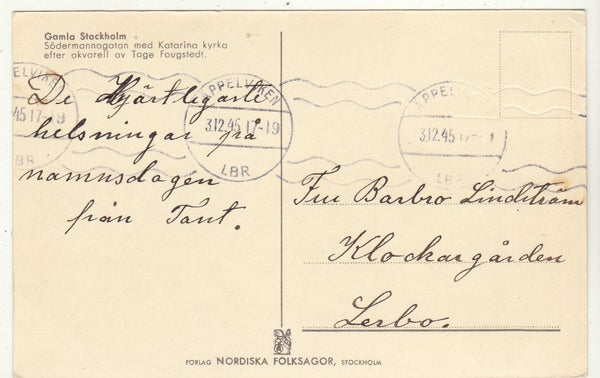 Gamla Stockholm
Södermannagatan med Katarina kyrka
efter akvarell av Tage Fougstedt.
De Hjärtligaste
helsningar på
namnsdagen
från Tant.
ÄPPELVIKEN
45 17-19
LBR
ÄPPELVIKEN
3.12.45 17-19
LBR
ÄPPEL
3.12.45 17-1
LBR
Fru Barbro Lindström
Klockargården
Lerbo.
FÖRLAG NORDISKA FOLKSAGOR, STOCKHOLM